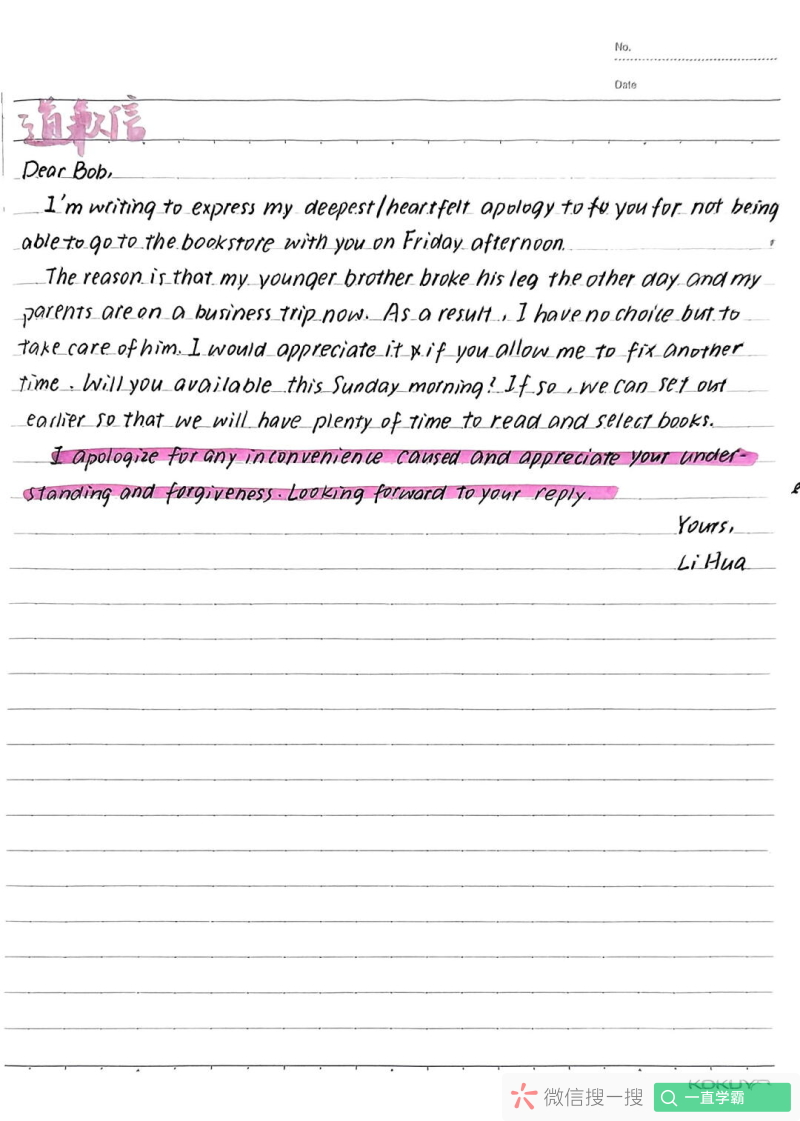 No.
Date
道歉信
Dear Bob,
I'm writing to express my deepest/heartfelt apology to you for not being
able to go to the bookstore with you on Friday afternoon.
The reason is that my younger brother broke his leg the other day and my
parents are on a business trip now. As a result, I have no choice but to
take care of him. I would appreciate it if you allow me to fix another
time. Will you available this Sunday morning? If so, we can set out
earlier so that we will have plenty of time to read and select books.
I apologize for any inconvenience caused and appreciate your under-
standing and forgiveness. Looking forward to your reply.
Yours,
Li Hua
KOKUYO
微信搜一搜
一直学霸